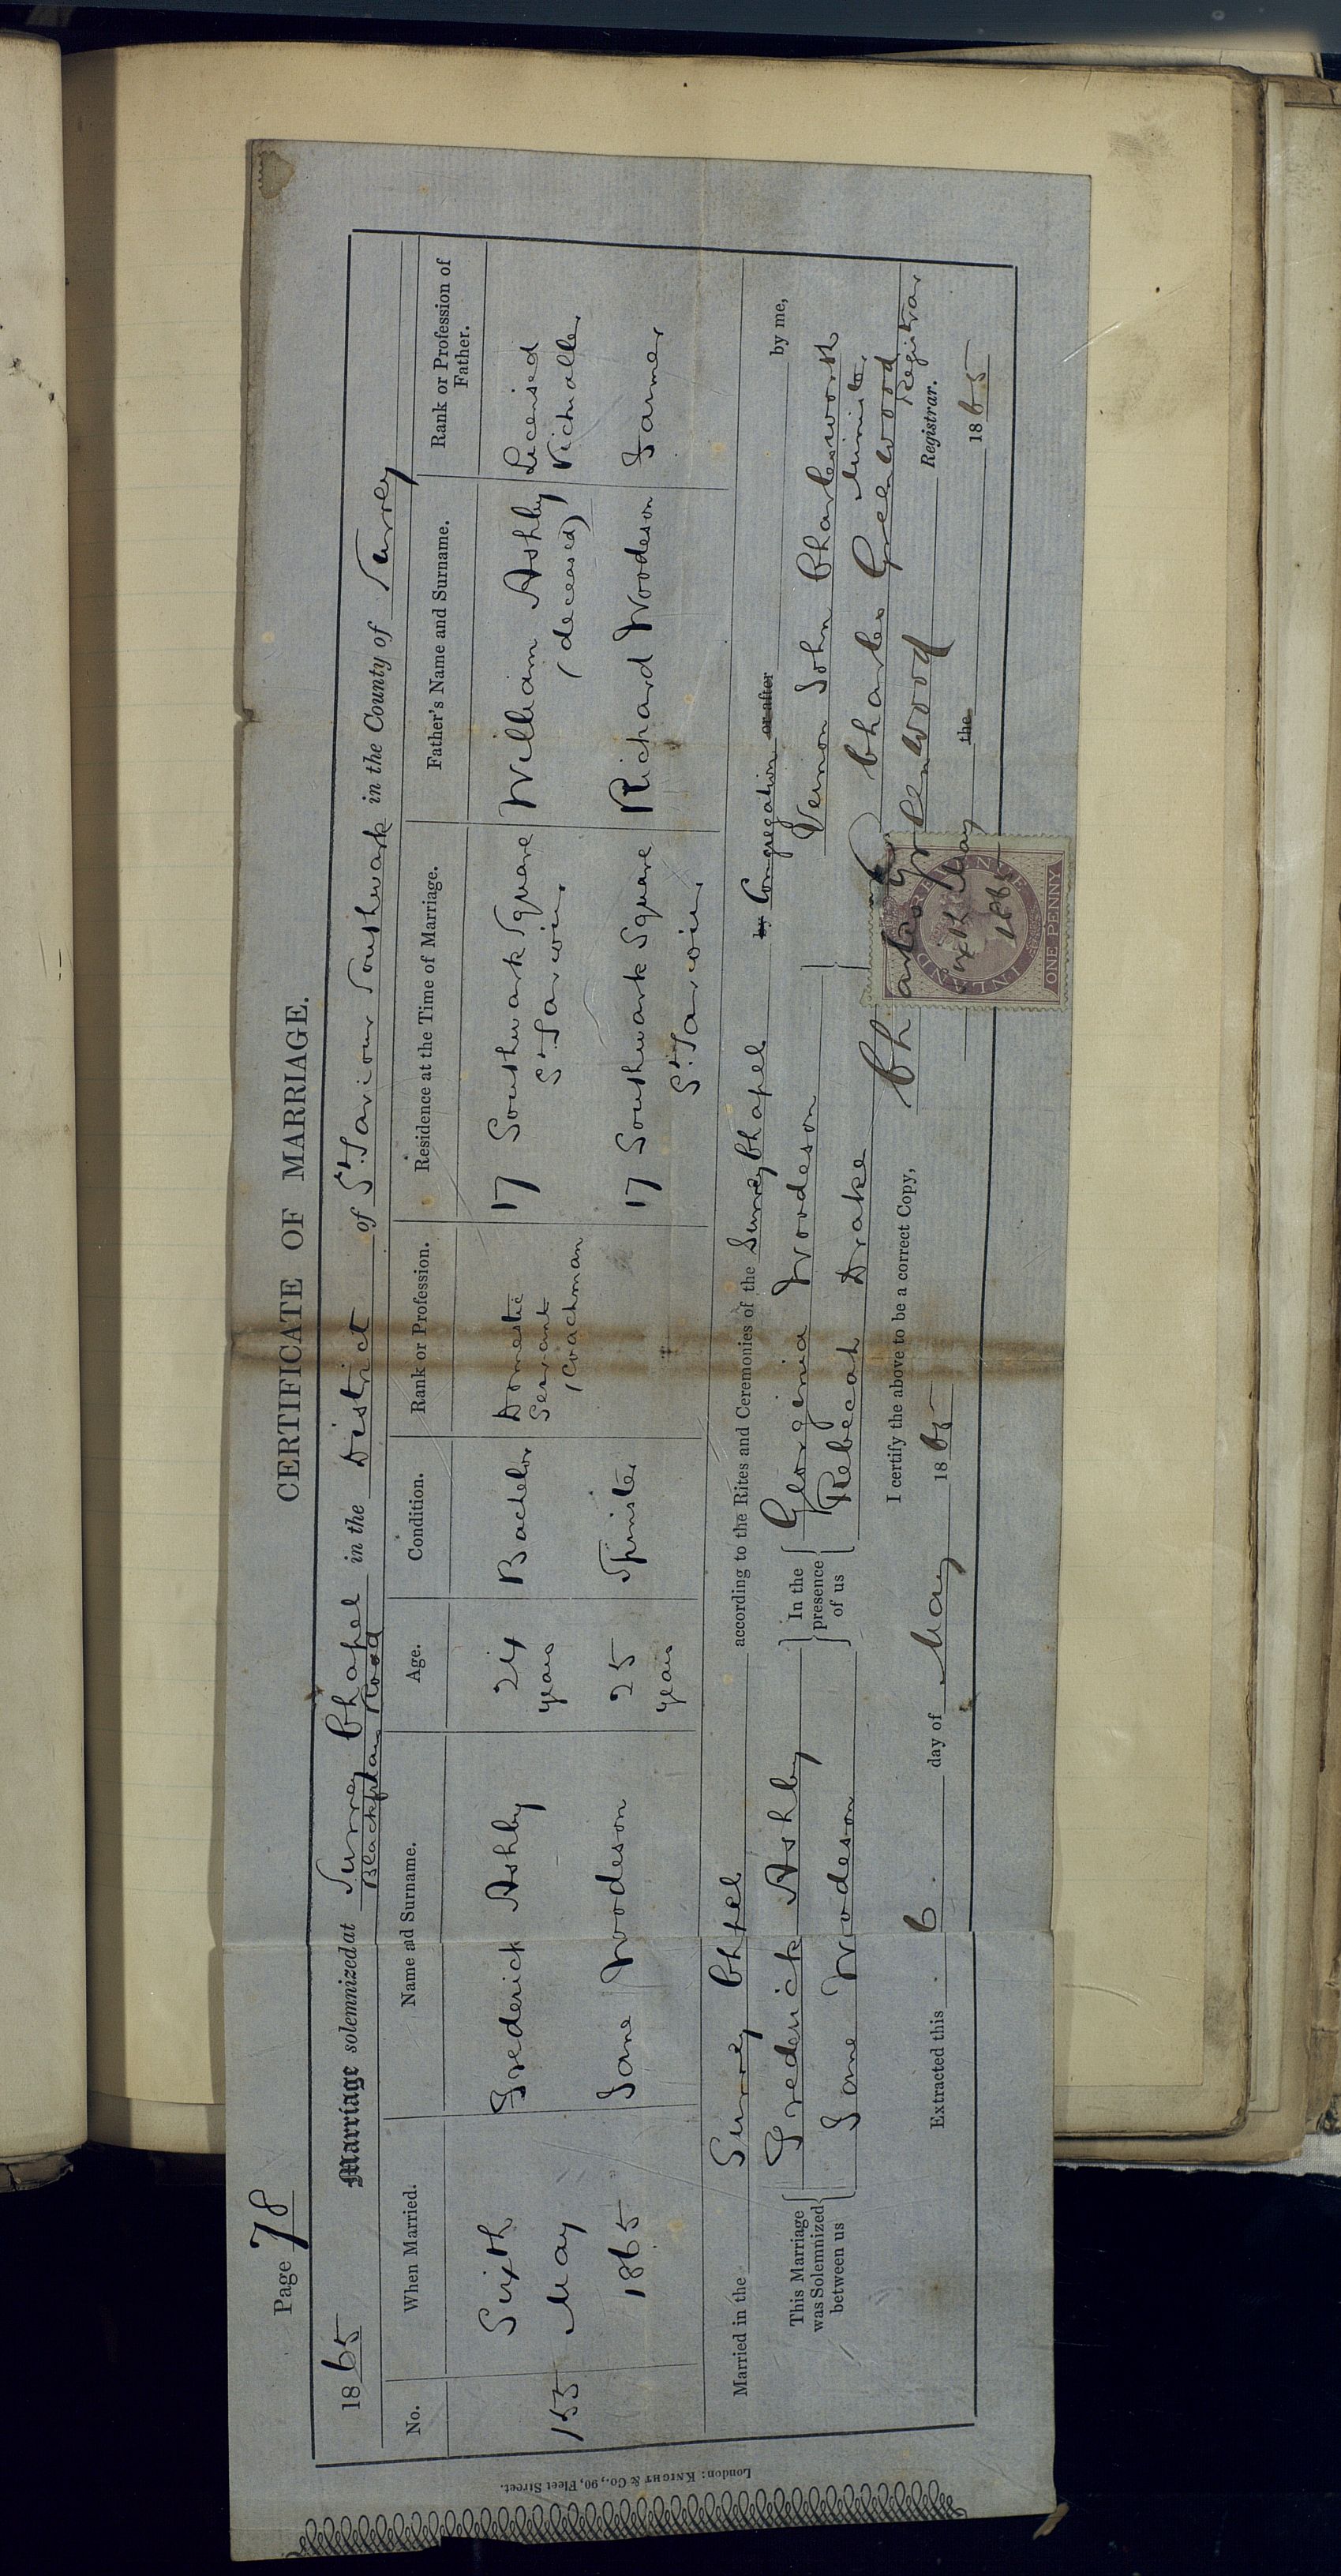 Page 78
CERTIFICATE OF MARRIAGE.
1865 Marriage solemnized at Surrey Chapel in the District of St. Saviour Southwark in the County of Surrey
Blackfriars Road
No. When Married. Name ad Surname. Age. Condition. Rank or Profession. Residence at the Time of Marriage. Father's Name and Surname. Rank or Profession of Father.
155 Sixth May 1865
Frederick Ashby 24 years Bachelor Domestic Servant (Coachman 17 Southwark Square St. Saviour William Ashby (deceased) Licensed Victualler
Jane Woodeson 25 years Spinster 17 Southwark Square St. Saviour Richard Woodeson Farmer
Married in the Surrey Chapel according to the Rites and Ceremonies of the Surrey Chapel by Congregation or after by me,
This Marriage was Solemnized between us
Frederick Ashby
Jane Woodeson
In the presence of us
Georginia Woodeson
Rebecah Drake
Vernon John Charlesworth
Minister
Charles Greenwood
Registrar
I certify the above to be a correct Copy,
Charles Greenwood Registrar.
Extracted this 6 day of May 1865
the 1865
INLAND REVENUE
ONE PENNY
Sixth May
1865
London: KNIGHT & Co., 90, Fleet Street.